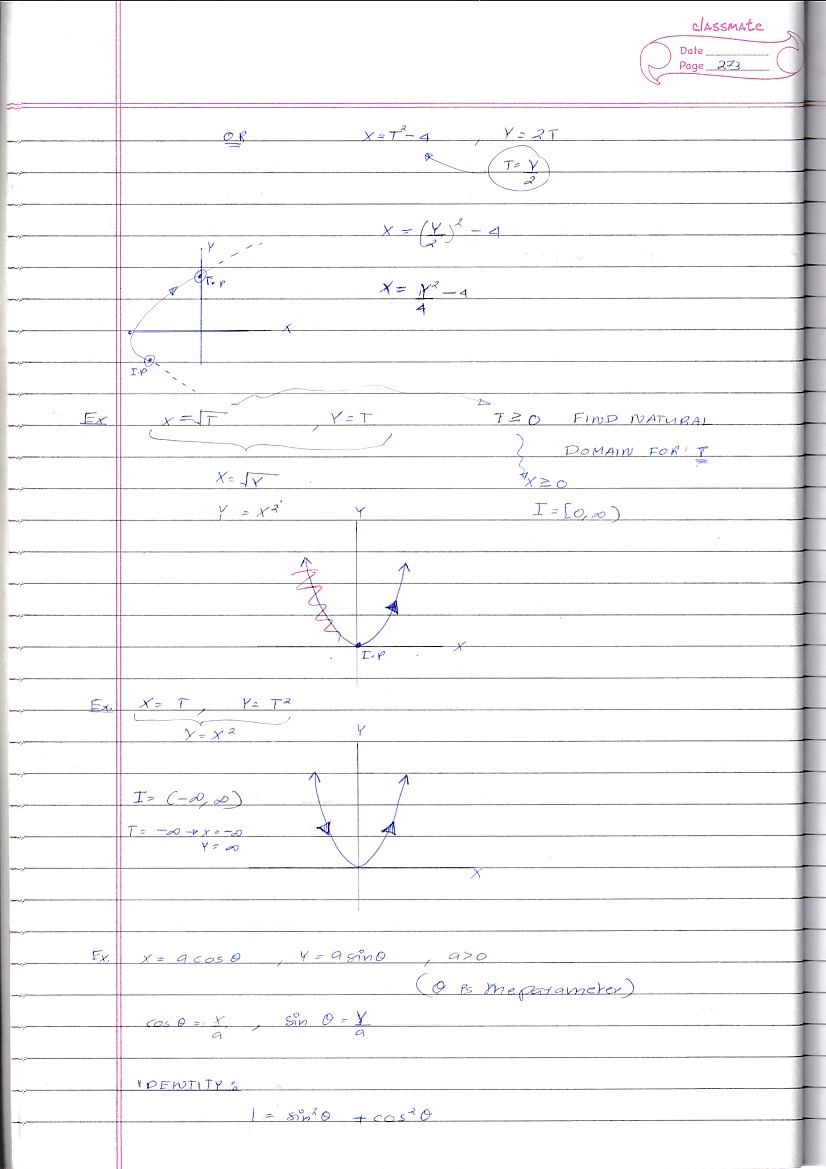 classmate
Date
Page 273
OR X = T² - 4 , Y = 2T
T = Y/2
X = (Y/2)² - 4
Y
T.P
X = Y²/4 - 4
X
I.P
Ex X = √T , Y = T T ≥ 0 FIND NATURAL
DOMAIN FOR T
X = √Y X ≥ 0
Y = X² I = [0, ∞)
Y
X
I.P
Ex. X = T , Y = T²
Y = X²
Y
I = (-∞, ∞)
T = -∞ → X = -∞
Y = ∞
X
Ex. X = a cos θ , Y = a sin θ , a > 0
(θ is the parameter)
cos θ = X/a , sin θ = Y/a
IDENTITY :
1 = sin²θ + cos²θ